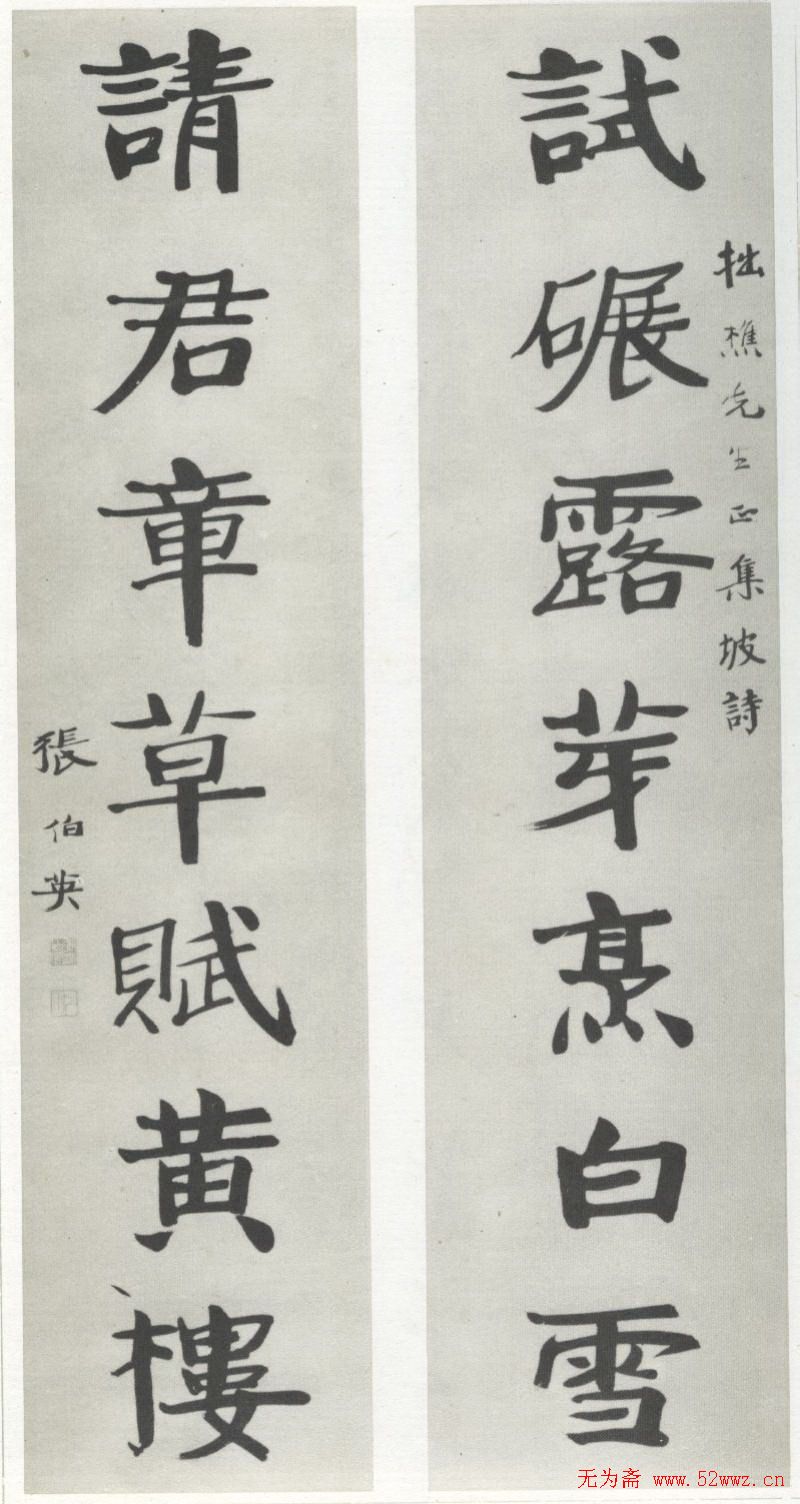 試碾露芽烹白雪
拙樵先生正集坡詩
請君章草賦黃樓
張伯英
无为斋 www.52wwz.cn